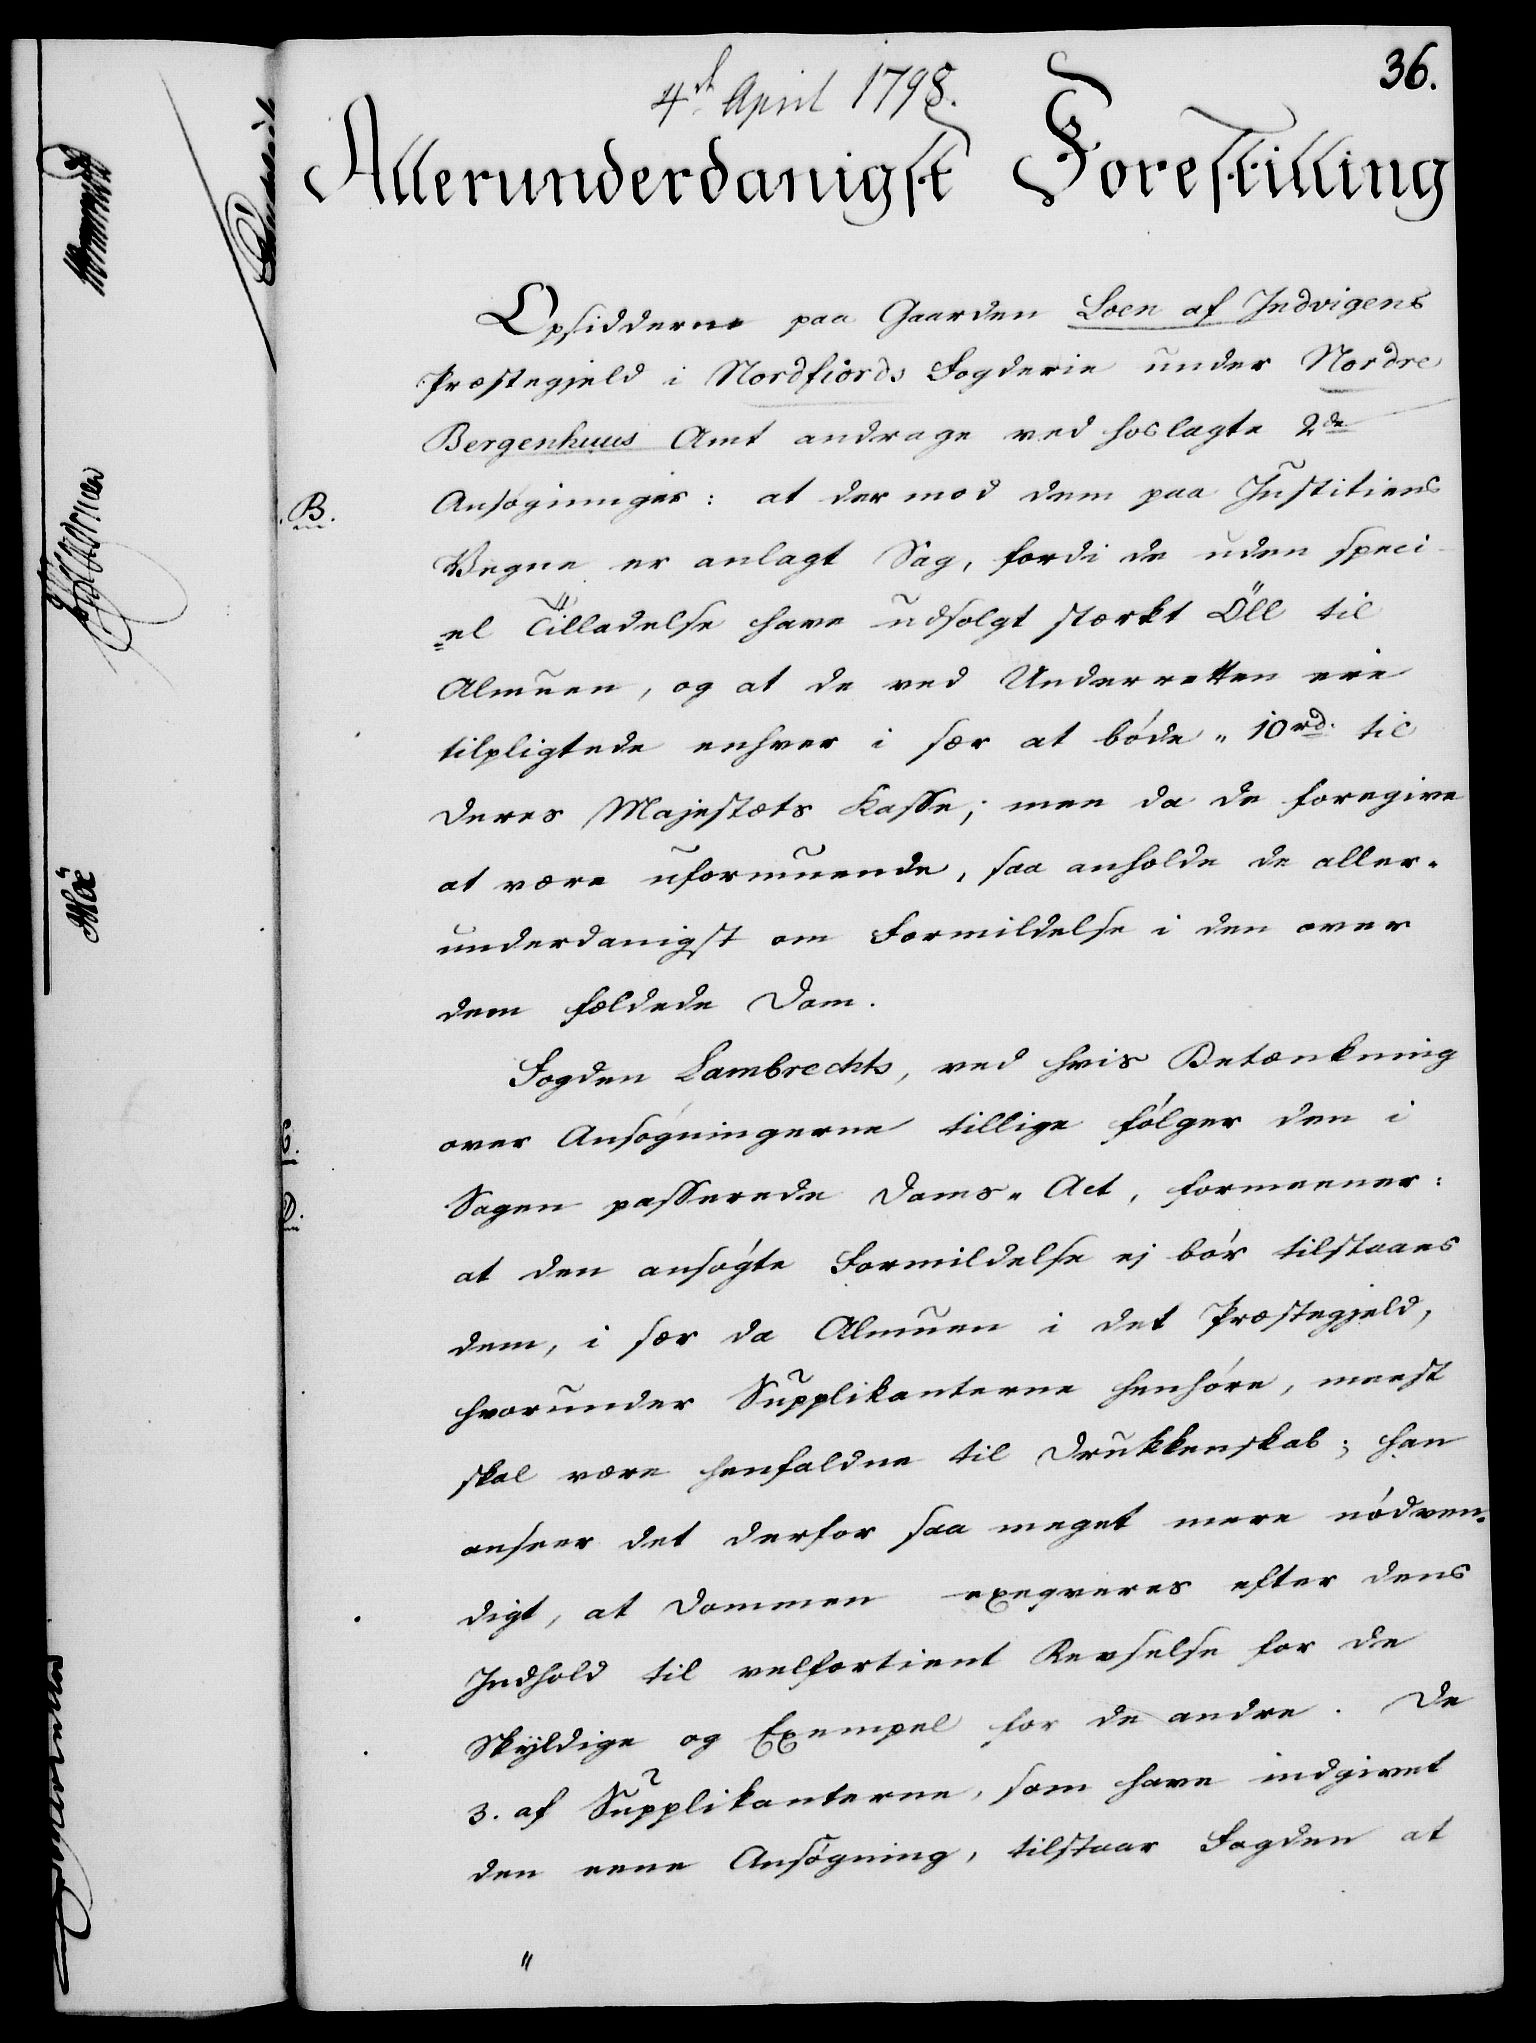 36.
4de April 1798.
Allerunderdanigst Forestilling
Opsidderne paa Gaarden Loen af Indvigens
Præstegjeld i Nordfiords Fogderie under Nordre
Bergenhuus Amt andrage ved hoslagte 2de
B. Ansøgninger: at der mod dem paa Justitiens
Vegne er anlagt Sag, fordi de uden speci-
el Tilladelse have udsolgt stærkt Öll til
Almuen, og at de ved Underretten ere
tilpligtede enhver i sær at bøde 10 rd. til
Deres Majestæts Kasse; men da de foregive
at være uformuende, saa anholde de aller-
underdanigst om Formildelse i den over
dem fældede Dom.
Fogden Lambrechts, ved hvis Betænkning
C. over Ansøgningerne tillige følger den i
D. Sagen passerede Doms-Act, formeener:
at den ansøgte Formildelse ej bør tilstaaes
dem, i sær da Almuen i det Præstegjeld,
hvorunder Supplikanterne henhøre, meest
skal være henfaldne til Drukkenskab; han
anseer det derfor saa meget mere nødven-
digt, at Dommen exeqveres efter dens
Indhold til velfortient Revselse for de
Skyldige og Exempel for de andre. De
3. af Supplikanterne, som have indgivet
den eene Ansøgning, tilstaar Fogden at